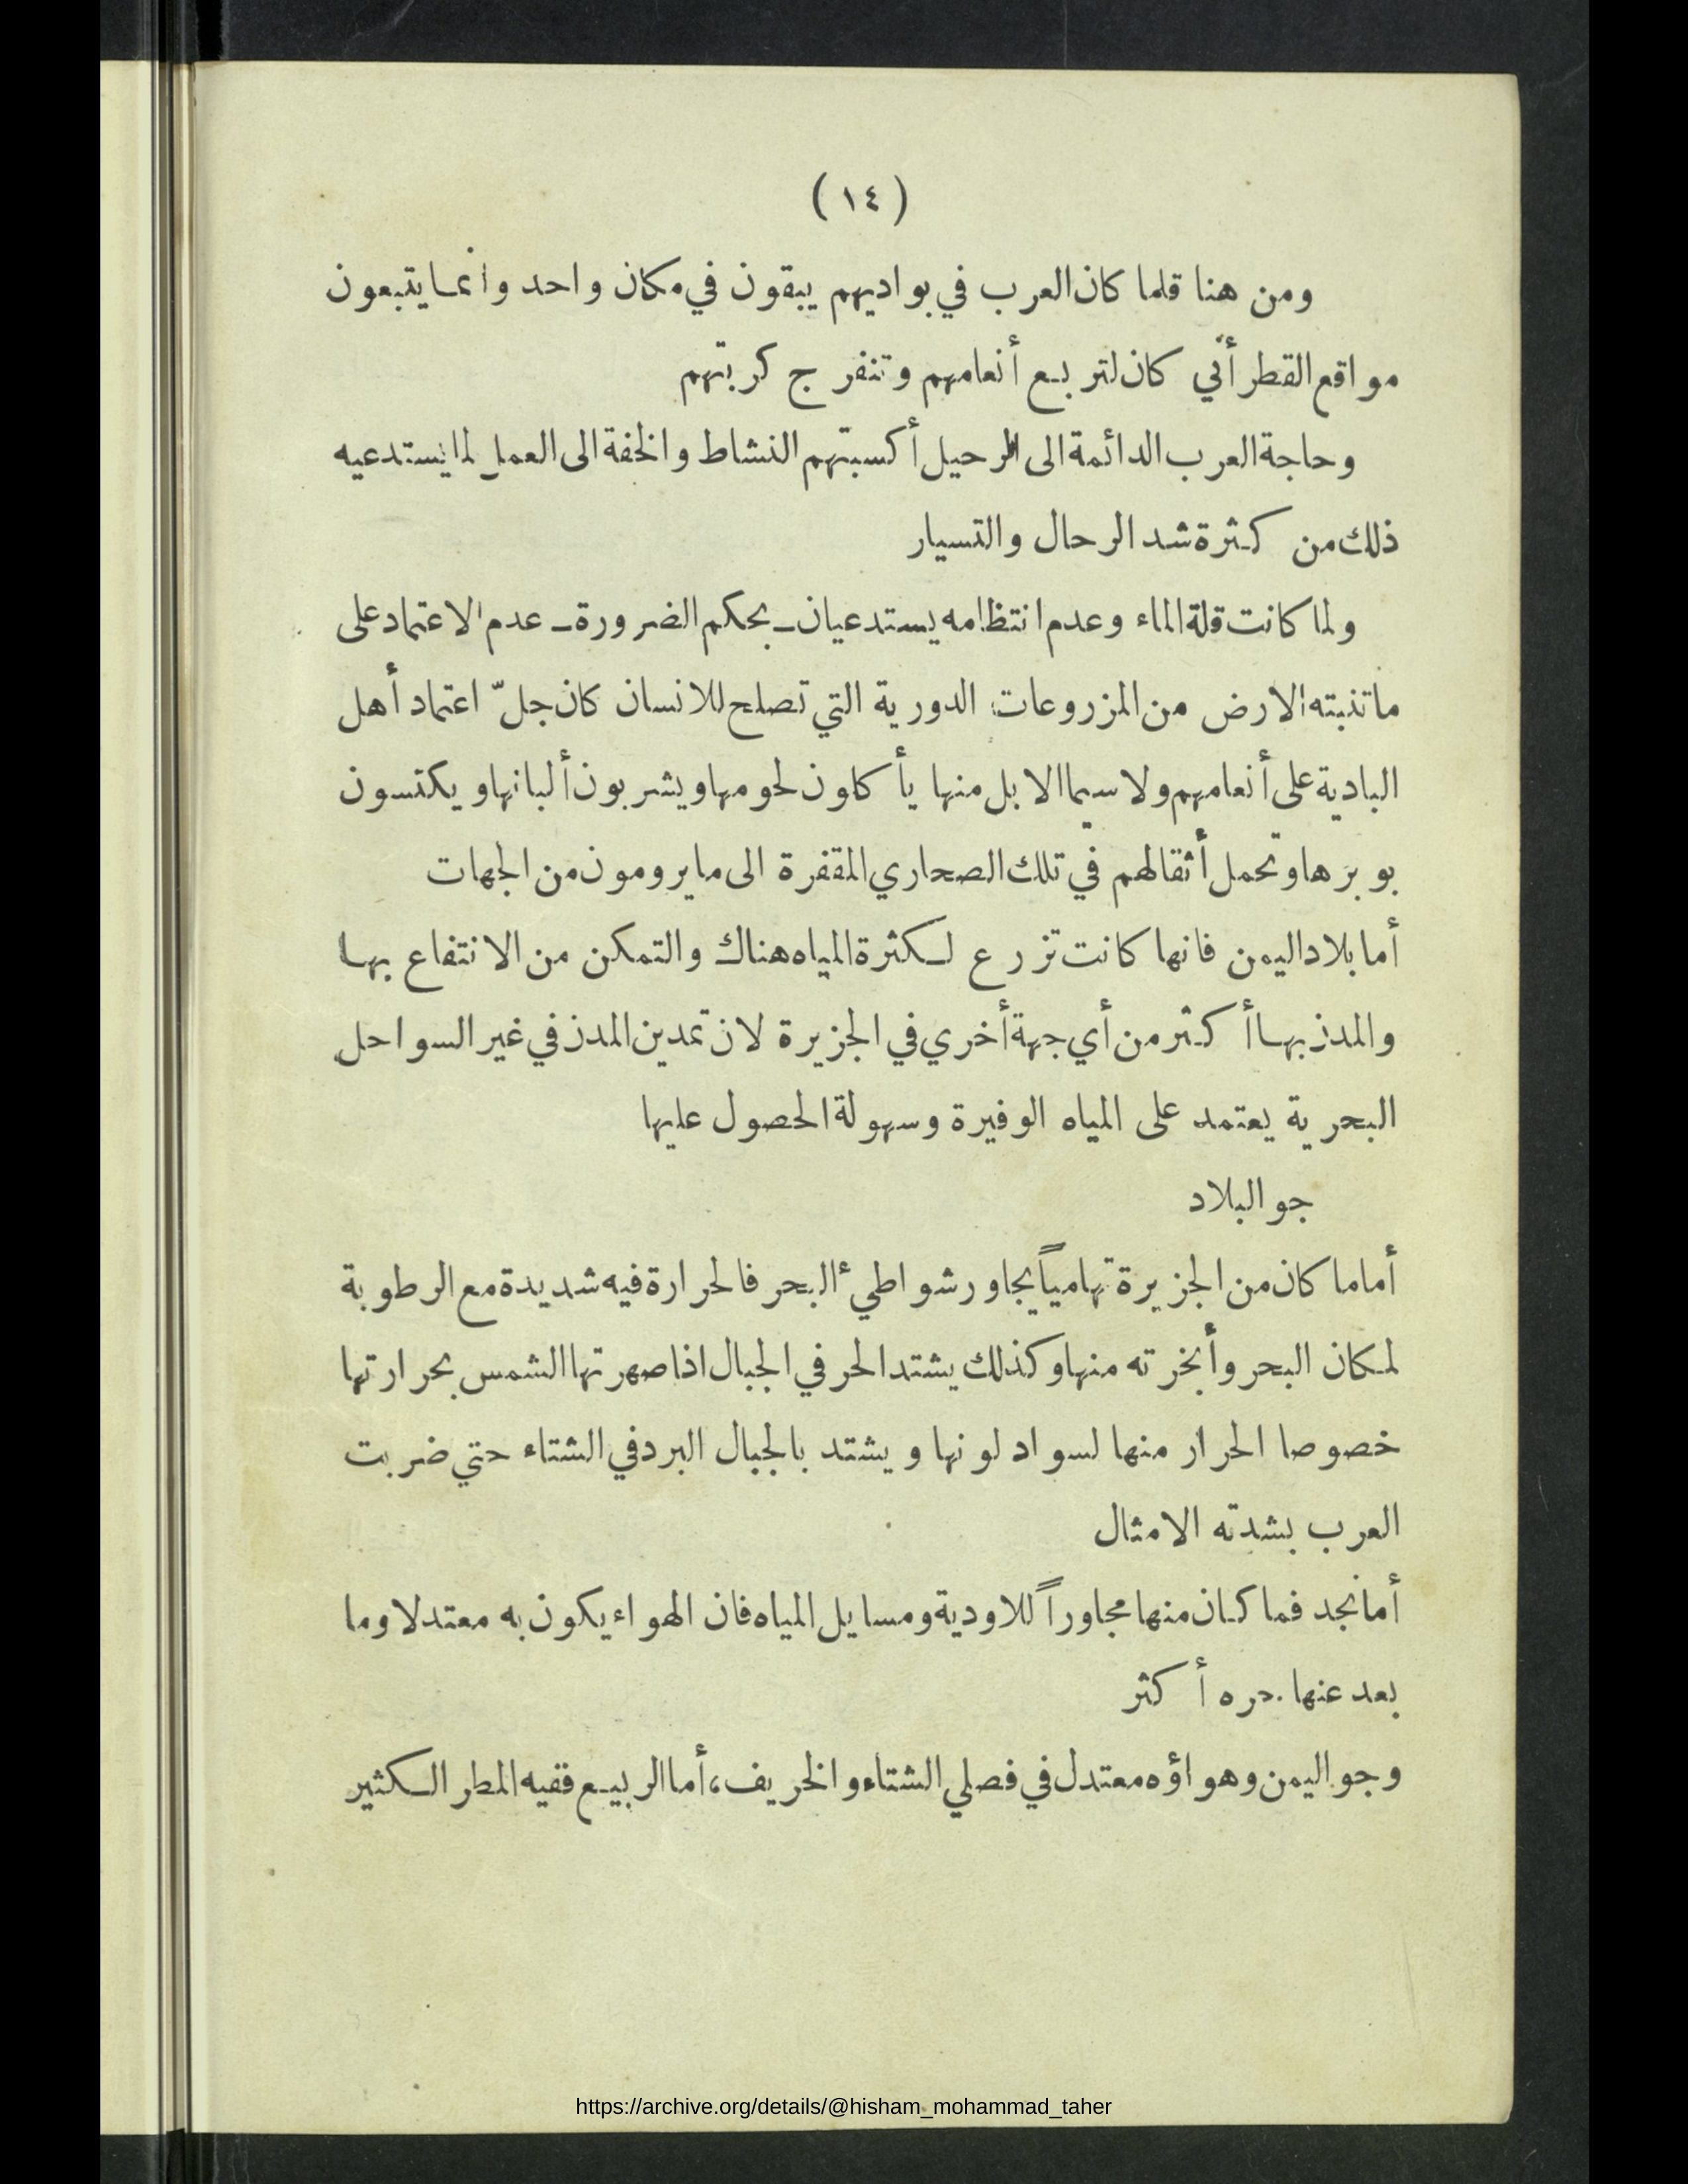 ( ١٤ )
ومن هنا قلما كان العرب في بواديهم يبقون في مكان واحد وانما يتبعون
مواقع القطر أنّي كان لتربع أنعامهم وتنفرج كربتهم
وحاجة العرب الدائمة الى الرحيل أكسبتهم النشاط والخفة الى العمل لما يستدعيه
ذلك من كثرة شد الرحال والتسيار
ولما كانت قلة الماء وعدم انتظامه يستدعيان ـ بحكم الضرورة ـ عدم الاعتماد على
ما تنبته الارض من المزروعات الدورية التي تصلح للانسان كان جلّ اعتماد أهل
البادية على أنعامهم ولا سيما الابل منها يأكلون لحومها ويشربون ألبانها ويكتسون
بوبرها وتحمل أثقالهم في تلك الصحاري المقفرة الى ما يرومون من الجهات
أما بلاد اليمن فانها كانت تزرع لكثرة المياه هناك والتمكن من الانتفاع بها
والمدن بها أكثر من أي جهة أخري في الجزيرة لان تمدين المدن في غير السواحل
البحرية يعتمد على المياه الوفيرة وسهولة الحصول عليها
جو البلاد
أما ما كان من الجزيرة تهامياً يجاور شواطئ البحر فالحرارة فيه شديدة مع الرطوبة
لمكان البحر وأبخرته منها وكذلك يشتد الحر في الجبال اذا صهرتها الشمس بحرارتها
خصوصا الحرار منها لسواد لونها ويشتد بالجبال البرد في الشتاء حتي ضربت
العرب بشدته الامثال
أما نجد فما كان منها مجاوراً للاودية ومسايل المياه فان الهواء يكون به معتدلا وما
بعد عنها حره أكثر
وجو اليمن وهواؤه معتدل في فصلي الشتاء والخريف، أما الربيع ففيه المطر الكثير
https://archive.org/details/@hisham_mohammad_taher